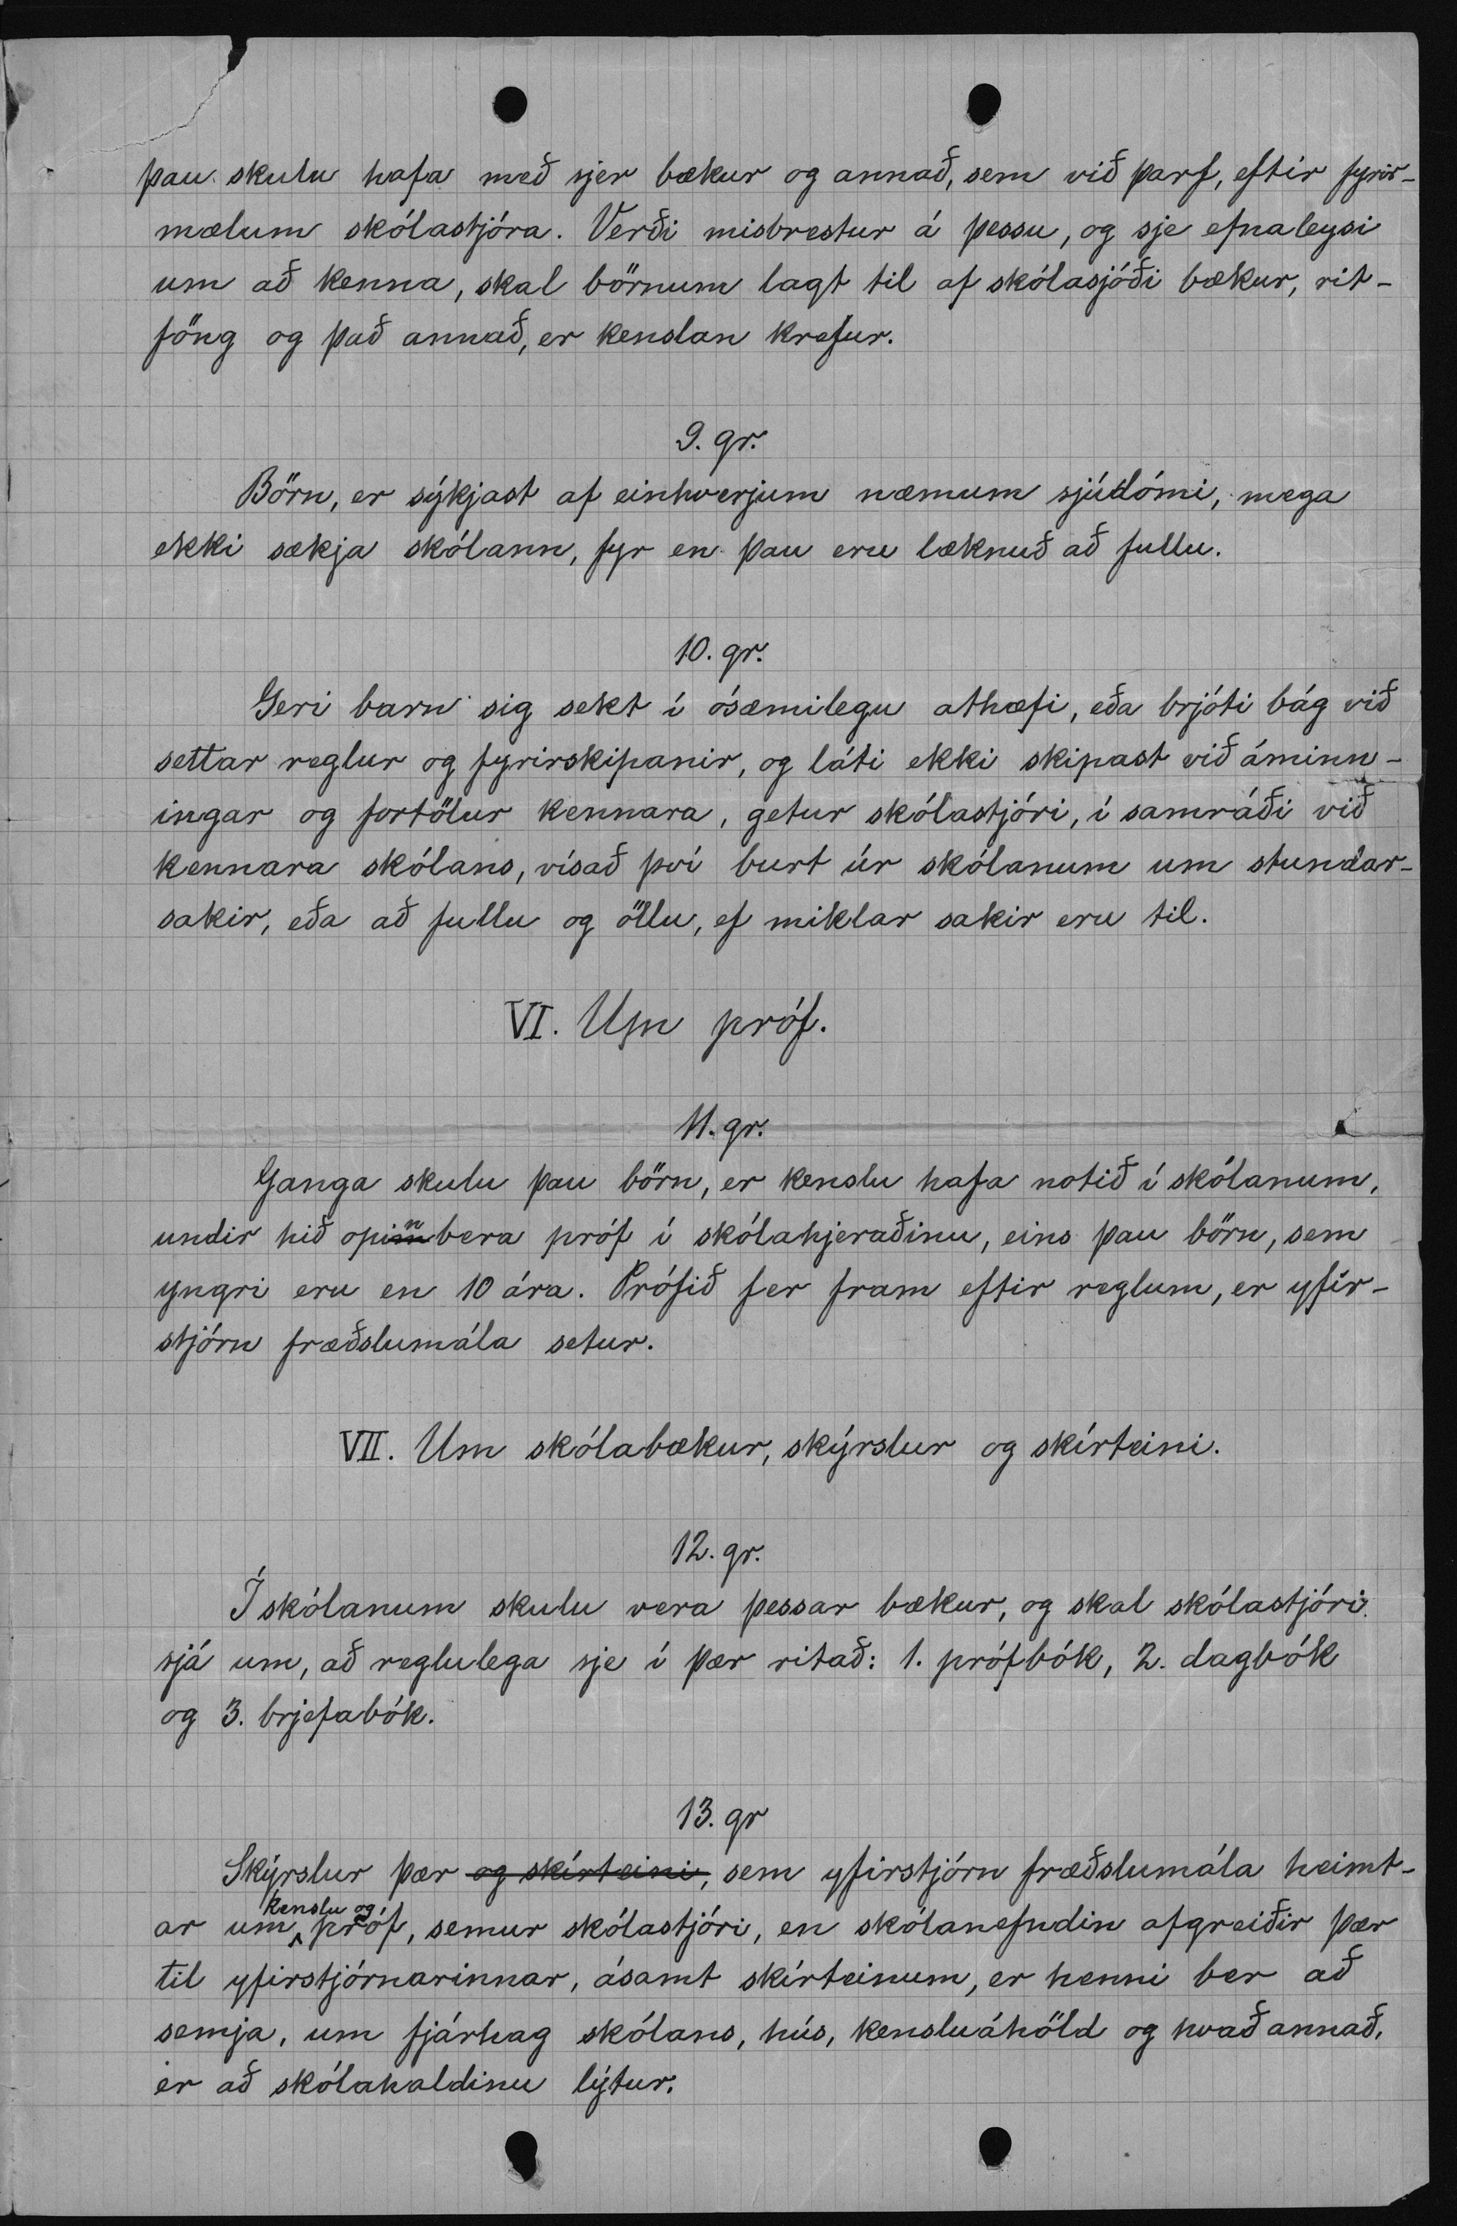 þau skulu hafa með sjer bækur og annað, sem við þarf, eftir fyrir-
mælum skólastjóra. Verði misbrestur á þessu, og sje efnaleysi
um að kenna, skal börnum lagt til af skólasjóði bækur, rit-
föng og það annað, er kenslan krefur.
9. gr.
Börn, er sýkjast af einhverjum næmum sjúdómi, mega
ekki sækja skólann, fyr en þau eru læknuð að fullu.
10. gr.
Geri barn sig sekt í ósæmilegu athæfi, eða brjóti bág við
settar reglur og fyrirskipanir, og láti ekki skipast við áminn-
ingar og fortölur kennara, getur skólastjóri, í samráði við
kennara skólans, vísað því burt úr skólanum um stundar-
sakir, eða að fullu og öllu, ef miklar sakir eru til.
VI. Um próf.
11. gr.
Ganga skulu þau börn, er kenslu hafa notið í skólanum,
undir hið opinbera próf í skólahjeraðinu, eins þau börn, sem
yngri eru en 10 ára. Prófið fer fram eftir reglum, er yfir-
stjórn fræðslumála setur.
VII. Um skólabækur, skýrslur og skírteini.
12. gr.
Í skólanum skulu vera þessar bækur, og skal skólastjóri
sjá um, að reglulega sje í þær ritað: 1. prófbók, 2. dagbók
og 3. brjefabók.
13. gr
Skýrslur þær og skírteini, sem yfirstjórn fræðslumála heimt-
ar um kenslu og próf, semur skólastjóri, en skólanefndin afgreiðir þær
til yfirstjórnarinnar, ásamt skírteinum, er henni ber að
semja, um fjárhag skólans, hús, kensluáhöld og hvað annað,
er að skólahaldinu lýtur.